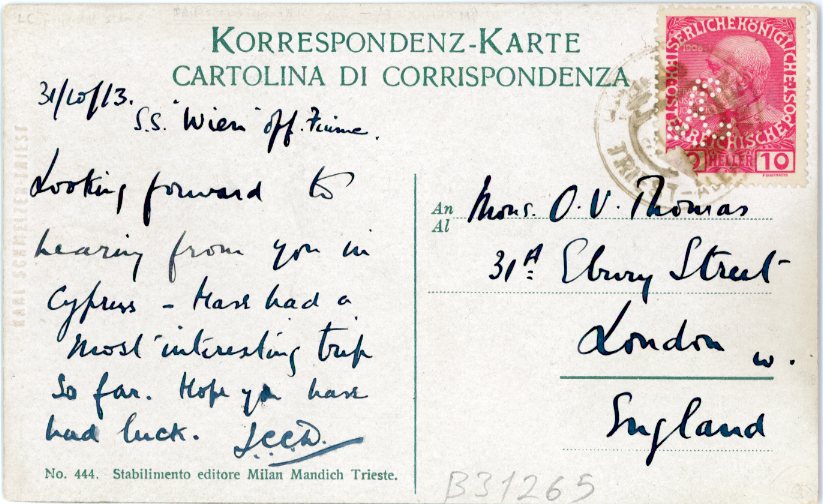 KORRESPONDENZ-KARTE
CARTOLINA DI CORRISPONDENZA
31/10/13.
S.S. "Wien" off. Fiume.
Looking forward to
hearing from you in
Cyprus – Have had a
most interesting trip
so far. Hope you have
had luck.
No. 444. Stabilimento editore Milan Mandich Trieste.
An
Al
Mons. O. V. Thomas
31A Ebury Street
London W.
England
1908
HELLER 10
TRIEST
KARL SCHMELZER-TRIEST
B31265